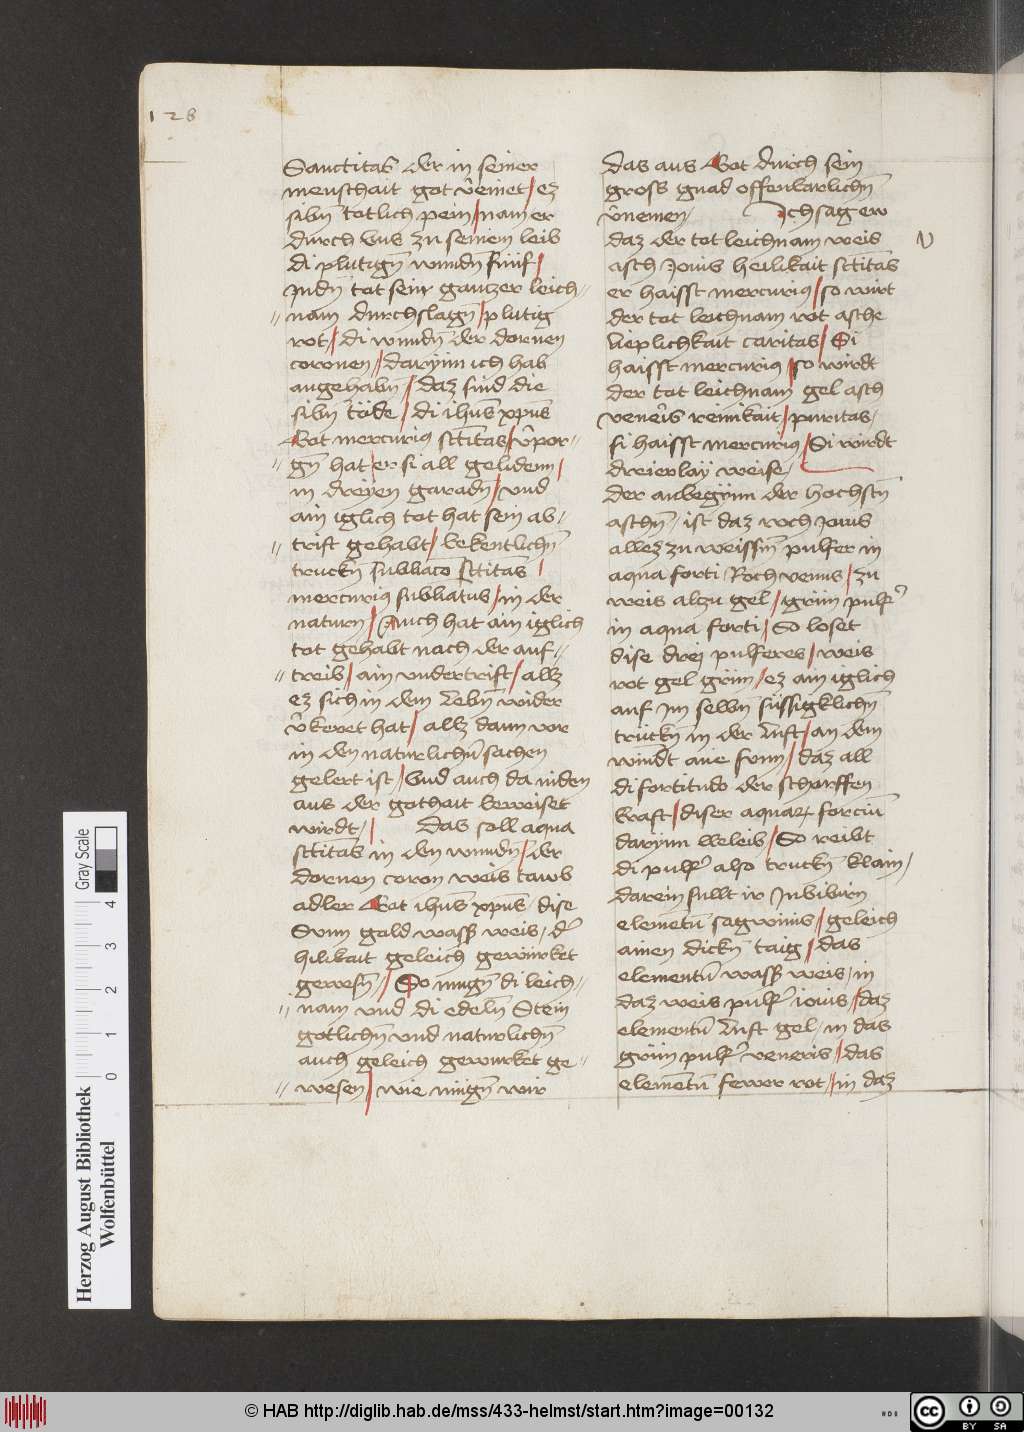 128
Sanctitas der in seiner
menschait got v̄einet / ez
sibn̄ totlich pein / nam er
durch vns zu seinem leib
di plutign̄ wundn̄ fünf /
Indn̄ tot seinr ganzer leich-
nam durchslagn̄ / plutig
rot / di wundn̄ der dornen
coronen / darÿnn ich hab
angehabn̄ / daz sind die
sibn̄ töde / di ihūs xp̄us
Got mercuriꝰ sctītas / v̄por-
gn̄ hat / er si all gelidenn /
in dreÿen garadn̄ / vnd
ain iglich tot hat sein ab-
trift gehabt / bekentlichn̄
truckn̄ subliacō sctītas /
mercuriꝰ subliatus / in der
naturn / Auch hat ain iglich
tot gehabt nach der auf-
treib / ain vndertrift / allz
ez sich in dem Lebn̄ wider
v̄keret hat / allz dann vor
in den naturlichn̄ sachen
gelert ist / Vnd auch da inden
aus der gothait beweiset
wirdt / das soll aqua
sctītas in den wundn̄ / der
dornen coron weis tawb
adler Got ihūs xp̄us / dise
Sunn gold wasser weis / d'
hilikait geleich gewürket
gewesn̄ / So mugn̄ di leich-
nam vnd di edeln̄ Stein
gotlichn̄ vnd naturlichn̄
auch geleich gewurket ge-
wesen / wie mügn̄ wir
das aus Got durch sein
gross gnad offenbarlichn̄
v̄nemen / Ich sag ew
daz der tot leichnam weis
asch Jouis heilikait sctītas
er haisst mercuriꝰ / so wirt
der tot leichnam rot asche
lieplichkait caritas / Si
haisst mercuriꝰ / so wirdt
der tot leichnam gel asch
vener̄is reinikait / puritas /
si haisst mercuriꝰ / Si wirdt
dreierlaÿ weise /
der anbegÿnn der hochstn̄
aschn̄ / ist daz roch Jouis
allez zu weissm̄ pulfer in
aqua forti / Roch venus / zu
weis alzu gel / grün pulf'
in aqua forti / So loset
dise drej pulferes / weis
rot gel grün / ez ain iglich
auf Im selbn̄ süssigklichn̄
trückn̄ in der luft / an dem
windt ane sunn / daz all
di fortitudo der scharffen
kraft / diser aquaꝝ forciū
darÿnn beleib / So reibt
di pulf' also truckn̄ klain /
darein fullt ir Inbibirn
elemetū sagwinis / geleich
ainen dickn̄ taig / das
elementū wass' weis / in
daz weis pulf' iouis / daz
elementū luft gel / in das
grün pulf' veneris / das
elemētū fewer rot / in daz
Herzog August Bibliothek
Wolfenbüttel
0 1 2 3 4
Gray Scale
© HAB http://diglib.hab.de/mss/433-helmst/start.htm?image=00132
cc BY SA